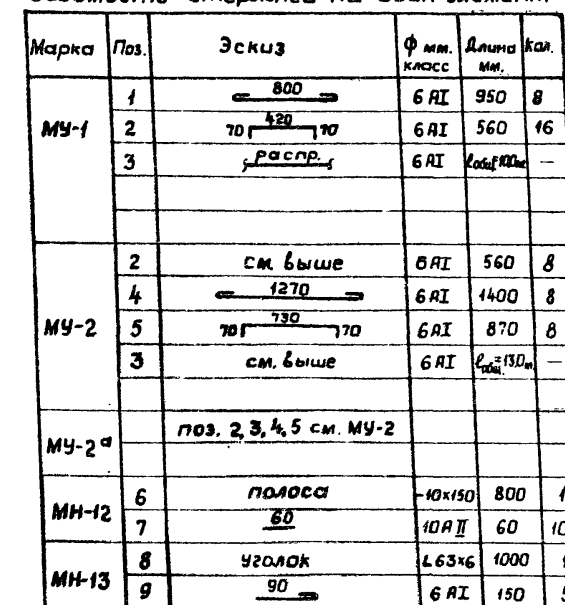 Марка Поз. Эскиз ϕ мм. класс Длина мм. Кол.
МУ-1
1 800 6 АI 950 8
2 70 420 70 6 АI 560 16
3 распр. 6 АI –
МУ-2
2 см. выше 6 АI 560 8
4 1270 6 АI 1400 8
5 70 730 70 6 АI 870 8
3 см. выше 6 АI ℓобщ.=13,0м –
МУ-2а поз. 2, 3, 4, 5 см. МУ-2
МН-12
6 полоса -10x150 800
7 60 10 А II 60
МН-13
8 уголок L63x6 1000
9 90 6 АI 150